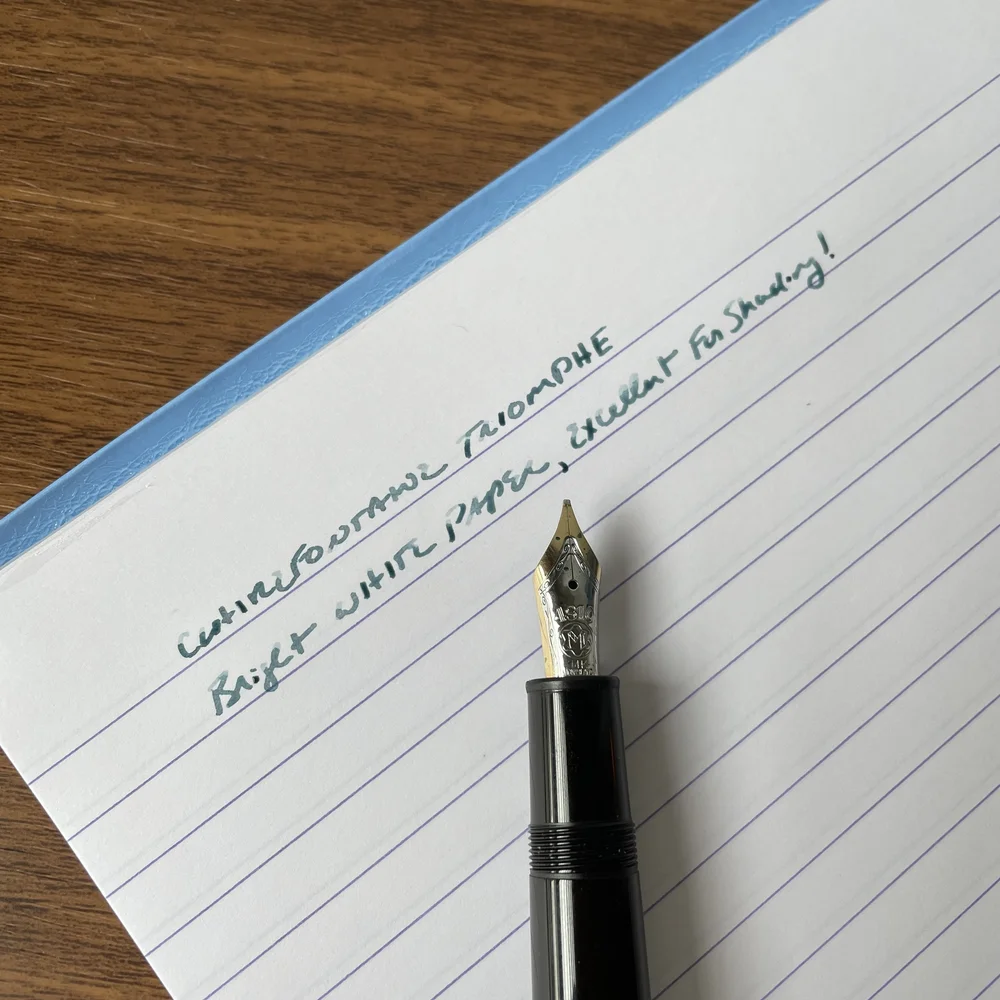 Clairefontaine TRIOMPHE
Bright WHITE PAPER, Excellent For Shading!
4810
M